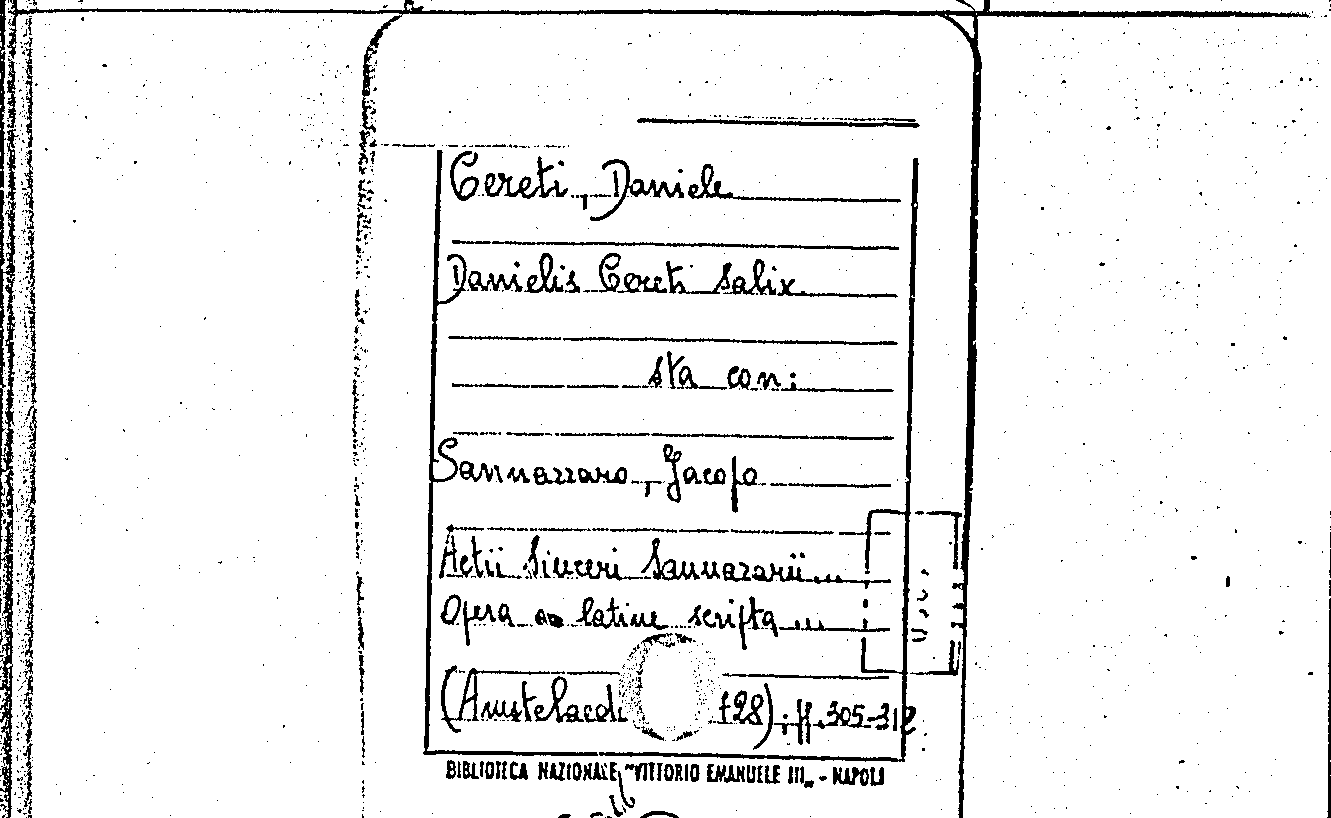 Cereti, Daniele
Danielis Cereti Salix
sta con:
Sannazzaro, Jacopo
Actii Sinceri Sannazarii...
Opera latine scripta...
28); ff. 305-312
BIBLIOTECA NAZIONALE "VITTORIO EMANUELE III" - NAPOLI